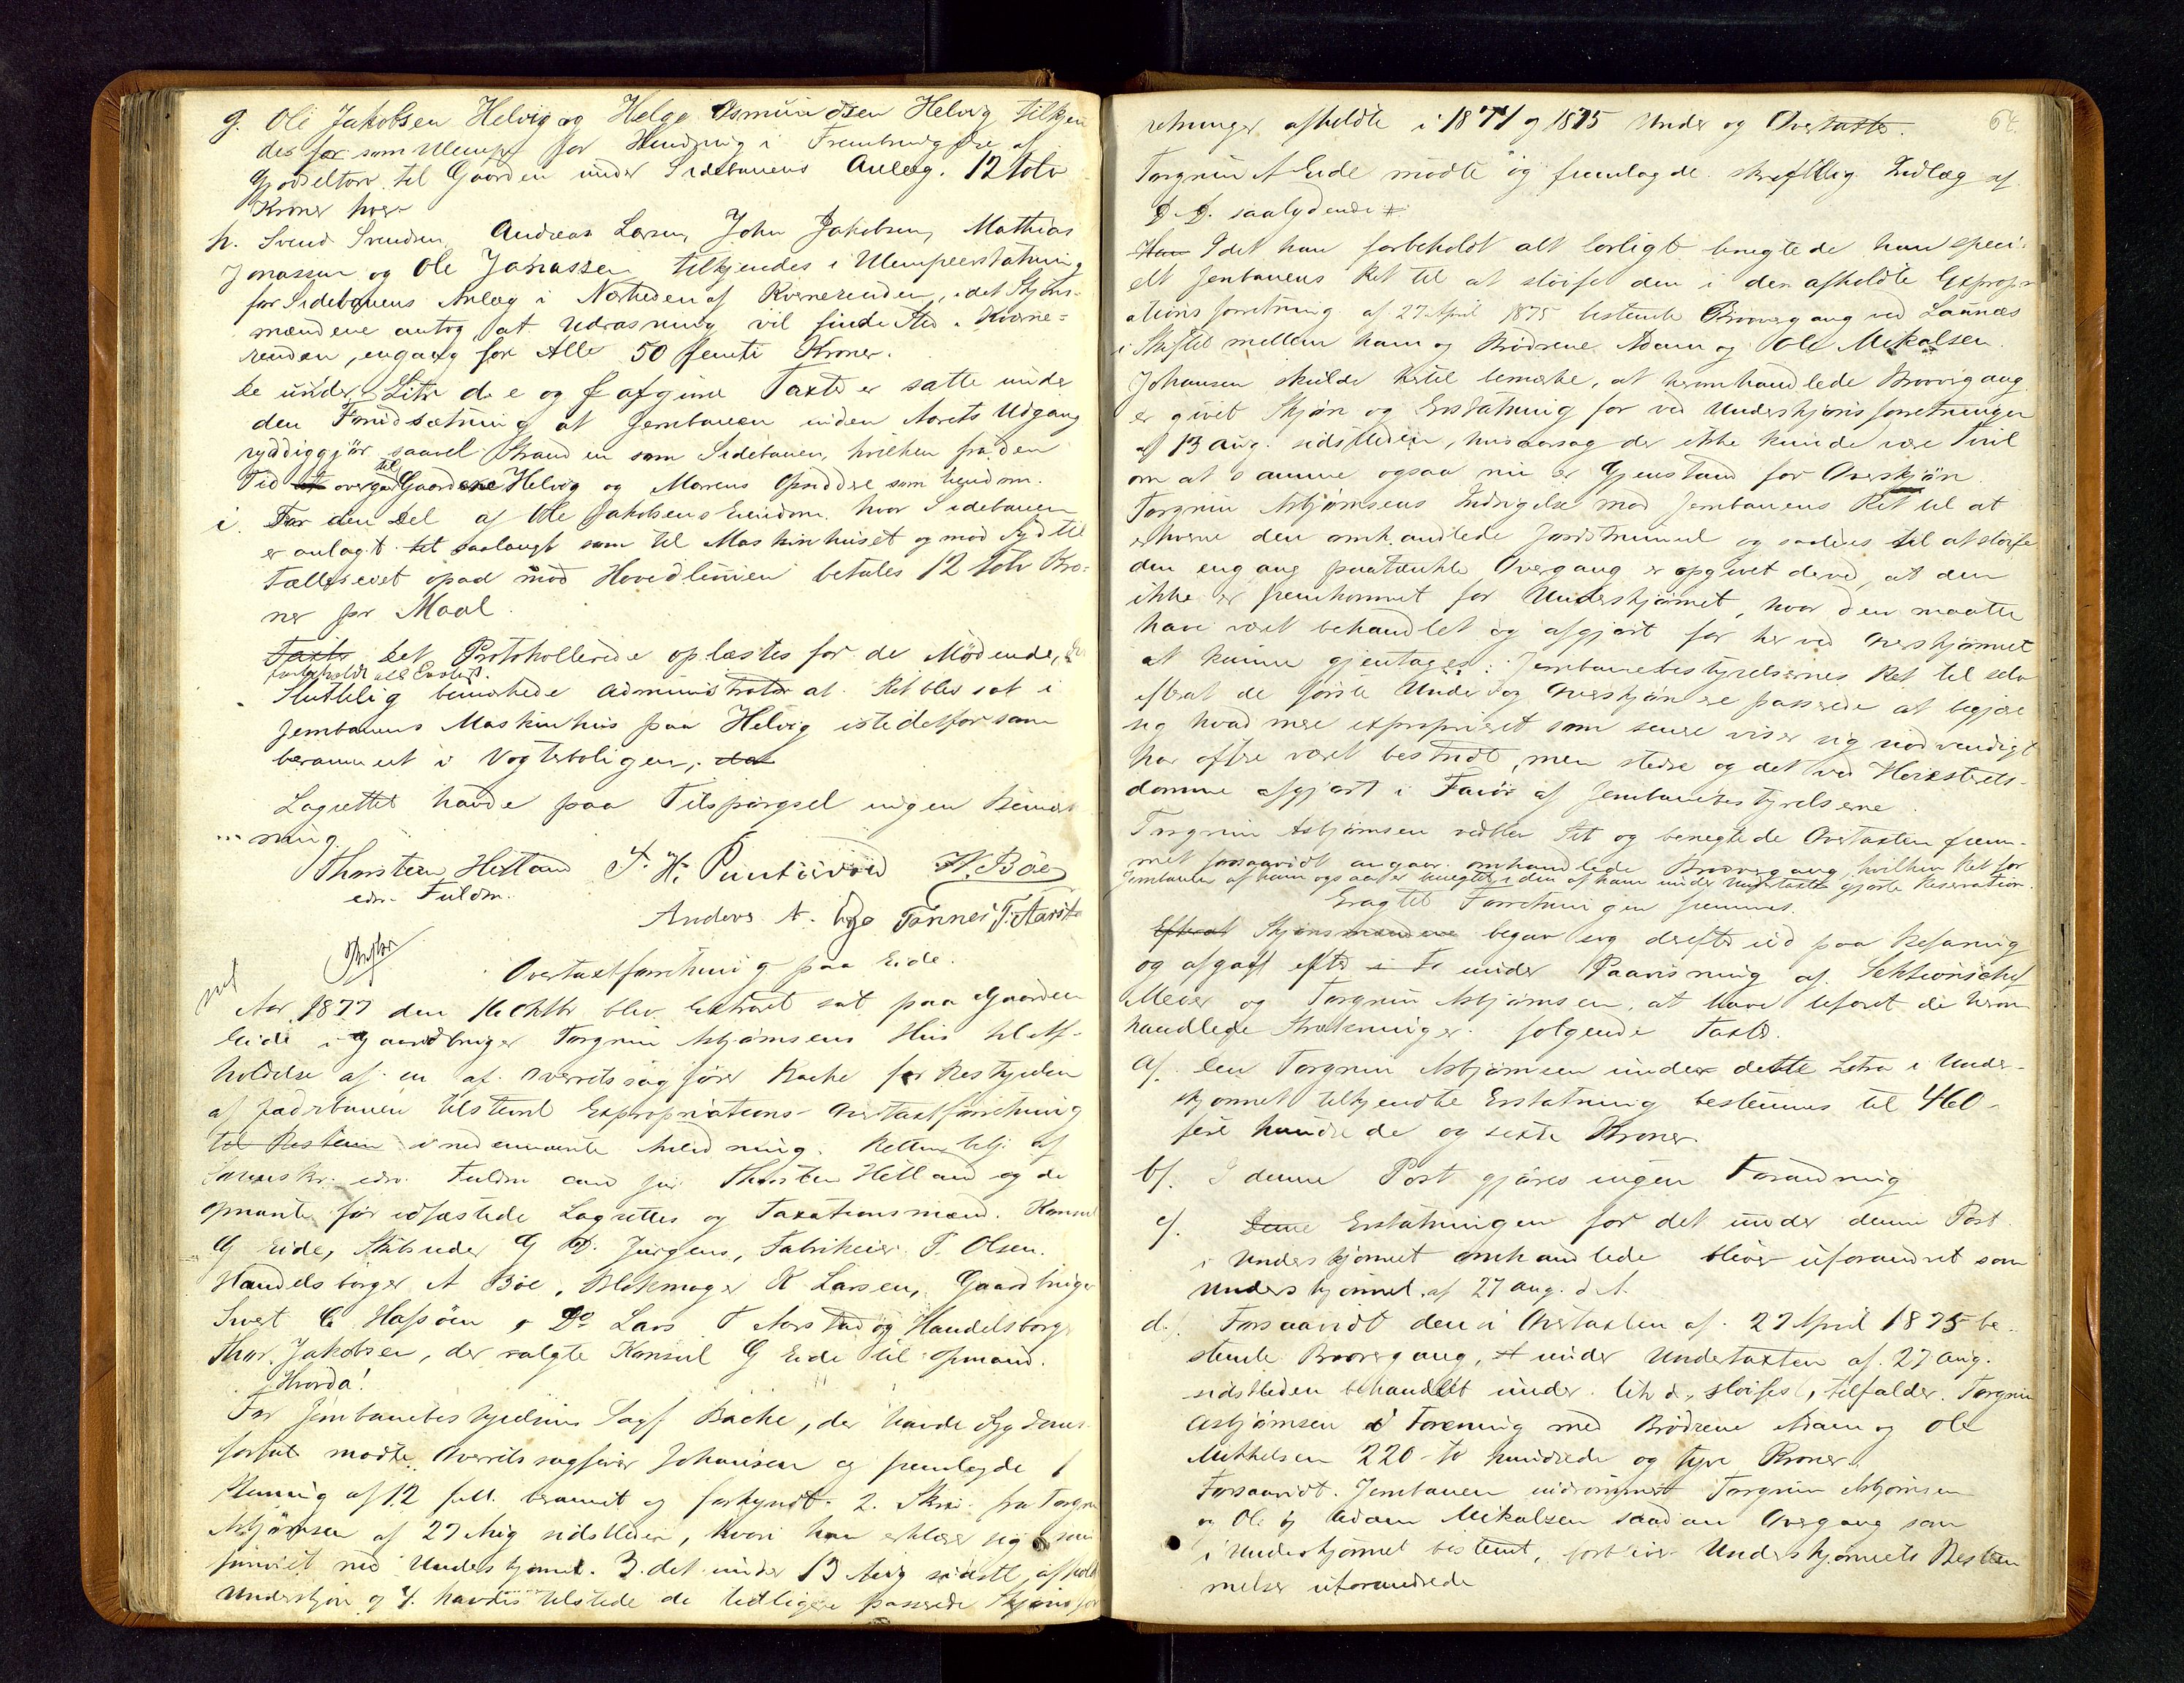 g. Ole Jakobsen Helvig og Helge Osmundsen Helvig tilkjen
des for som Ulempe for Hindring i Frembringelse af
Gjødseltorv til Gaarden under Sidebanens Anlæg. 12 tolv
Kroner hver
h. Svend Svendsen, Andreas Larsen, John Jakobsen, Mathias
Jonassen og Ole Jonassen tilkjendes i Ulempeerstatning
for Sidebanens Anlæg i Nærheden af Kvernerenden, idet Skjøns-
mændene antog, at Udrasning vil finde Sted i Kverne-
renden, engang for Alle 50 femti Kroner.
De under Litr d. e og f afgivne Taxter er satte under
den Forudsætning at Jernbanen inden Aarets Udgang
ryddiggjør saavel Stranden som Sidebanen, hvilken fra den
Tid at overgaar til Gaardene Helvig og Opsiddere som Eiendom.
i. For den Del af Ole Jakobsens Eiendom hvor Sidebanen
er anlagt saalangt som til Maskinhuset og mod Syd til
Fællesveiet opad mod Hovedlinien betales 12 tolv Kro-
ner pr Maal.
Taxter Det Protokollerede oplæstes for de Mødende,
forbeholdt alt
Sluttelig bemærkede Administrator at Ret blev sat i
Jernbanens Maskinhus paa Helvig istedetfor som
berammet i Vogterboligen, det
Lagrettet havde paa Tilspørgsel ingen Bemærk
ning
Thorsten Hetland T. H. Puntervold A. Böe
edsv. Fuldm.
Anders A. Ege Tønnes T. Aarstad
Overtaxtforretning paa Eide.
Aar 1877 den 16 Oktbr blev Extraret sat paa Gaarden
Eide i Gaardbruger Torgrim Asbjørnsens Hus til Af-
holdelse af en af Overretssagfører Bache for Bestyrelsen
af Jæderbanen tilstevnt Expropriations-Overtaxtforretning
til Bestem i nedennævnte Anledning. Retten betj. af
Sorenskr. edsv. Fuldm cand jur. Thorsten Hetland og de
opnævnte før edfæstede Lagrettes og Taxationsmænd. Konsul
G Eide, Skibsreder G D. Jürgens, Fabrikeier T. Olsen.
Handelsborger A Böe, Blokmager K Larsen, Gaardbruger
Sivert C Hafsöen, Do Lars T Aarstad og Handelsborger
Thor. Jakobsen, der valgte Konsul G Eide til Opmand.
Hvorda!
For Jernbanebestyrelsen Sagf Bache, der havde Sygdoms-
forfald mødte Overretssagfører Johansen og fremlagde 1
Stevning af 12 berammet og forkyndt. 2. Skri. fra Torgrim
Asbjørnsen af 27 Aug sidstleden, hvori han erklærer sig
fornøiet med Underskjønnet. 3. det under 13 Aug sidstl. afholdt
Underskjøn og 4. havdes tilstede de tidligere passerede Skjønsfor
64.
retninger afholdte i 1874 og 1875 Under og Overtaxter.
Torgrim A Eide mødte og fremlagde skriftlig Indlæg af
D. D. saalydende
Han Idet han forbeholdt alt lovligt benegtede han speci-
elt Jernbanens Ret til at sløife den i den afholdte Expropri
ationsforretning af 27 April 1875 bestemte Broovergang ved Lannæs
i Skiftet mellem ham og Brødrene Adam og Ole Mikalsen.
Johansen skulde hertil bemærke, at heromhandlede Broovergang
er givet Skjøn og Erstatning for ved Underskjønsforretningen
af 13 aug. sidstleden, hvisaarsag der ikke kunde være Tvivl
om at samme ogsaa nu er Gjenstand for Overskjøn.
Torgrim Asbjørnsens Indsigelse mod Jernbanens Ret til at
erhverve den omhandlede Jordstrimmel og saaledes til at sløife
den engang paatænkte Overgang er opgivet derved, at den
ikke er fremkommet for Underskjønnet, hvor den maatte
have været behandlet og afgjort for her ved Overskjønnet
at kunne gjentages. Jernbanebestyrelsernes Ret til selv
efterat de første Under og Overskjøn ere passerede at begjære
sig hvad mere exproprieret som senere viser sig nødvendigt
har oftere været bestridt, men stedse og det ved Høiesterets-
domme afgjort i Favør af Jernbanebestyrelserne.
Torgrim Asbjørnsen vedblev Sit og benegtede Overtaxten frem-
met forsaavidt angaar omhandlede Broovergang, hvilken Ret for
Jernbanen af ham ogsaa er benegtet i den af ham under Undertaxten gjorte Reservation.
Eragtet Forretningen fremmes.
Efterat Skjønsmændene begav sig derefter ud paa Befaring
og afgav efter i Fo under Paavisning af Sektionschef
Meier og Torgrim Asbjørnsen, at have befaret de herom
handlede Strækninger følgende Taxter.
a/. Den Torgrim Asbjørnsen under dette Litra i Under-
skjønnet tilkjendte Erstatning bestemmes til 460 -
fire hundrede og sexti Kroner.
b/. I denne Post gjøres ingen Forandring
c/. Denne Erstatningen for det under denne Post
i Underskjønnet omhandlede bliver uforandret som
Underskjønnet af 27 aug. d. A.
d./ Forsaavidt den i Overtaxten af 27 April 1875 be-
stemte Broovergang, at under Undertaxten af 27 aug.
sidstleden behandlet under litr d, sløifes, tilfalder Torgrim
Asbjørnsen i Forening med Brødrene Adam og Ole
Mikkelsen 220 - to hundrede og tyve Kroner.
Forsaavidt Jernbanen indrømmer Torgrim Asbjørnsen
og Ole og Adam Mikalsen saadan Overgang som
i Underskjønnet bestemt, forbliver Underskjønnets Bestem
melser uforandrede